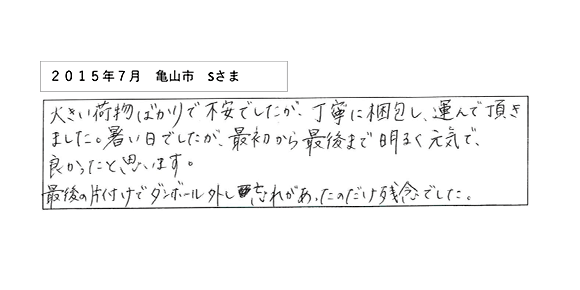 2015年7月　亀山市　Sさま
大きい荷物ばかりで不安でしたが、丁寧に梱包し、運んで頂き
ました。暑い日でしたが、最初から最後まで明るく元気で、
良かったと思います。
最後の片付けでダンボール外し忘れがあったのだけ残念でした。